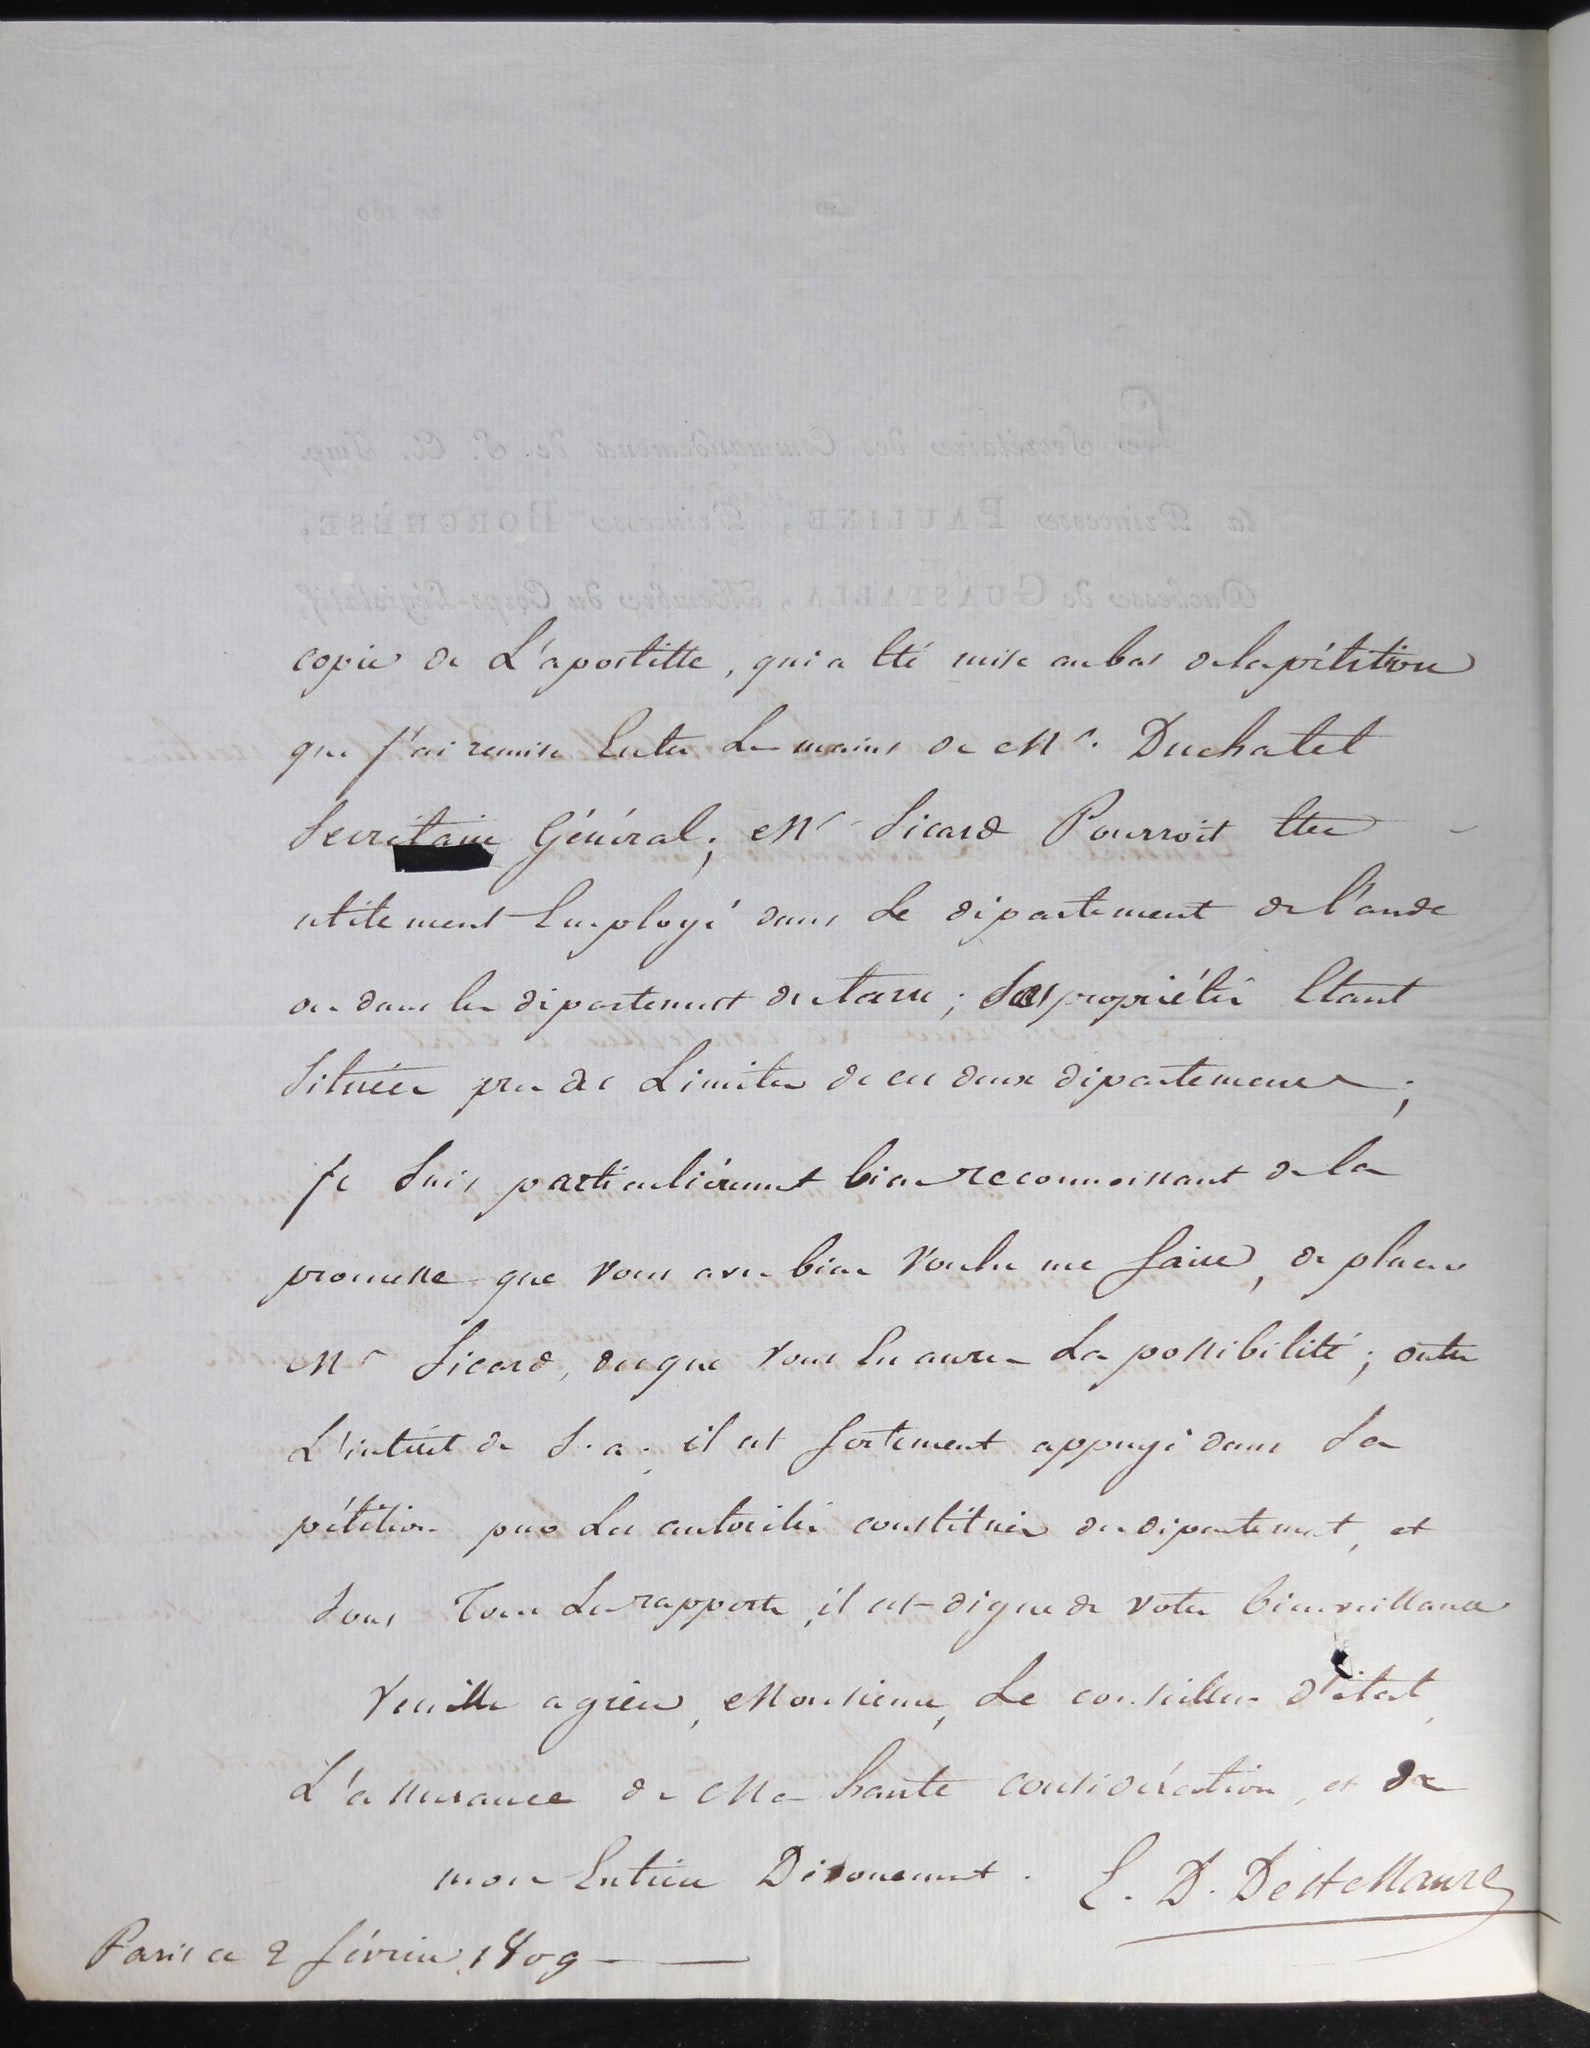 copie de L'apostille, qui a Eté mise au bas de la pétition
que j'ai remise Entre Les mains de Mr. Duchatel
Secrétaire Général; Mr Sicard Pourroit Etre
utilement Employé dans Le département de l'aude
ou dans le département du tarn; Ses propriétés Etant
Situées près des Limites de ces deux départements;
je Suis particulièrement bien reconnoissant de la
promesse que vous avez bien Voulu me faire, de placer
Mr Sicard, des que vous En aurez La possibilité; outre
L'intérêt de S. a. il est fortement appuyé dans Sa
pétition par Les autorités constituées du département, et
Sous Tous Les rapports, il est digne de votre bienveillance
Veuillez agréer, Monsieur, Le conseiller d'état,
L'assurance de Ma haute considération, et de
mon Entier Dévouement.
Paris ce 2 février 1809
La Secrétaire des Commandemens de S. A. Imp.
la Princesse PAULINE, Princesse BORGHÈSE,
Duchesse de GUASTALLA, Membre du Corps-Législatif,